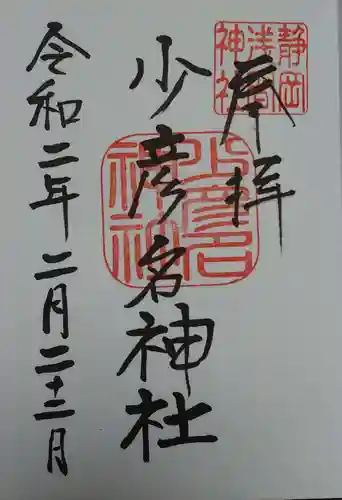 奉拝
静岡
浅間
神社
少彦名神社
少彦名
神社
令和二年二月二十二日